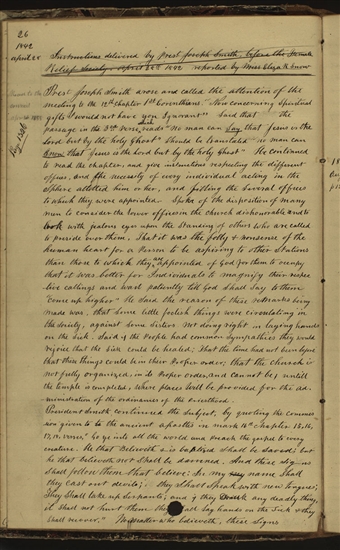 26
1842
april 28
Instructions delivered by Prest Joseph Smith, before the Female
Relief Society, April 28th 1842 reported by Miss Eliza R. Snow
Prest Joseph Smith arose and called the attention of the
meeting to the 12th chapter 1st Corinthians "Now concerning spiritual
gifts I would not have you Ignorant" Said that the
passage in the 3d verse, reads "No man can say that Jesus is the
Lord but by the holy Ghost" Should be translated "no man can
know that Jesus is the Lord but by the holy Ghost". He continued
to read the chapter, and give instructions respecting the different
offices, and the necessity of every individual acting in the
sphere allotted him or her, and filling the several offices
to which they were appointed. Spoke of the disposition of many
men to consider the lower offices in the church dishonourable and to
look with jealous eyes upon the standing of others who are called
to preside over them. That it was the folly & nonsense of the
human heart for a Person to be aspiring to other Stations
than those to which they are appointed of God for them to occupy
that it was better for Individuals to magnify their respec
tive callings and wait patiently till God shall say to them
"come up higher" He said the reason of these remarks being
made was, that some little foolish things were circulating in
the society, against some sisters not doing right in laying hands
on the sick. Said if the People had common sympathies they would
rejoice that the sick could be healed; that the time had not been before
that these things could be in their Proper order; that the church is
not fully organized, in its Proper order, and cannot be, until
the temple is completed, where places will be provided for the ad-
ministration of the ordinances of the Priesthood.
President Smith continued the subject, by quoting the commis-
sion given to the ancient apostles in mark 16th chapter 15, 16,
17, 18, verses, "Go ye into all the world and Preach the gospel to every
creature. He that Believeth & is baptized shall be saved; but
he that Believeth not shall be damned. And these signs
shall follow them that believe: In my name shall
they cast out devils; they shall speak with new tongues;
They shall take up serpents; and if they drink any deadly thing,
it shall not hurt them; they shall lay hands on the sick & they
shall recover." No matter who believeth, these signs